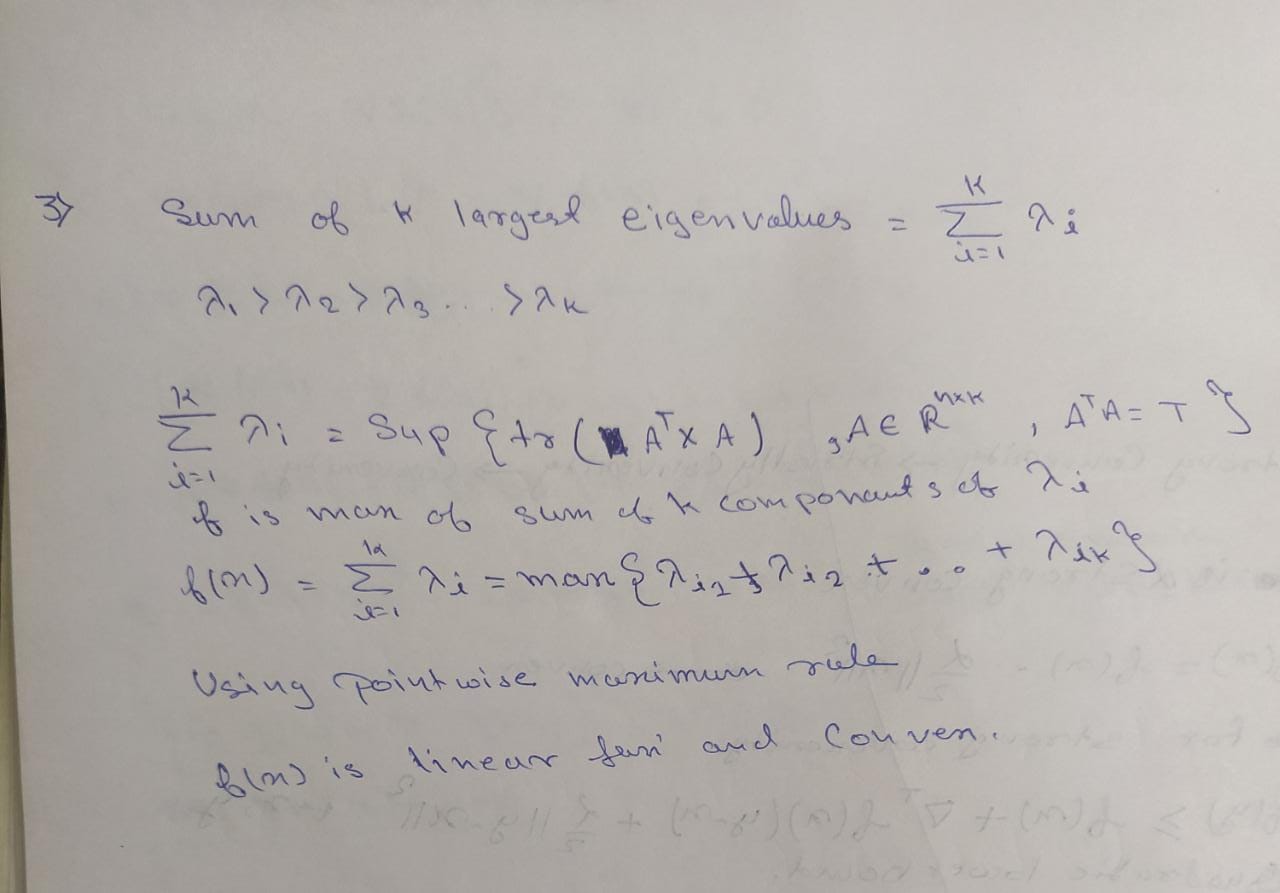 3) Sum of K largest eigenvalues = \sum_{i=1}^{K} λi
λ1 > λ2 > λ3 ... > λK
\sum_{i=1}^{K} λi = Sup { tr ( A^T X A ) , A ∈ R^{n×K} , A^T A = I }
f is max of sum of k components of λi
f(x) = \sum_{i=1}^{k} λi = max { λi1 + λi2 + ... + λik }
Using pointwise maximum rule
f(x) is linear fun' and Convex.